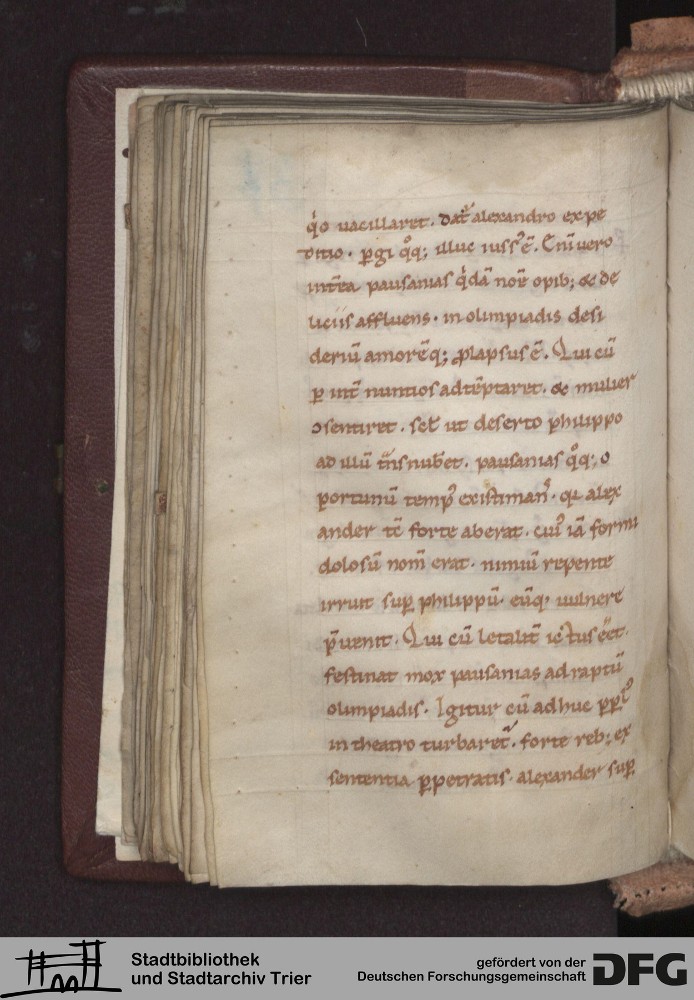 q̇o vacillaret. dat᷑ alexandro expe
ditio. ꝑgi q̊q; illuc iuss᷒ ē. Cūi vero
int̄ea pausanias q̇dā noīe opib; & de
liciis affluens. in olimpiadis desi
deriū amorēq; ꝓlapsus ē. Qui cū
ꝑ int̄ nuntios adtēptaret. & mulier
ↄsentiret. scīł ut deserto philippo
ad illū t̄nsnub̄et. pausanias q̊q; o
portunū temp᷒ existimans. qđ alex
ander tc̄ forte aberat. cui᷒ iā formi
dolosū nom̄ erat. nimiū repente
irruit suꝑ philippū. eūq; vulnere
p̄uenit. Qui cū letalit̄ ictus eēt.
festinat mox pausanias ad raptū
olimpiadis. Igitur cū adhuc ꝑꝑ
in theatro turbaret᷑. forte reb; ex
sententia ꝑpetratis. alexander suꝑ
Stadtbibliothek
und Stadtarchiv Trier
gefördert von der
Deutschen Forschungsgemeinschaft
DFG